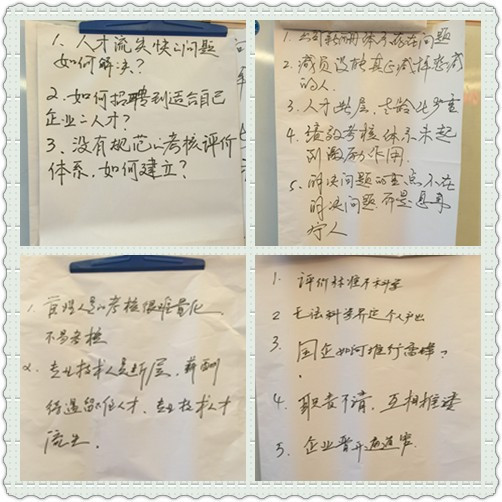 1. 人才流失快的问题
如何解决?
2. 如何招聘到适合自己
企业的人才?
3. 没有规范的考核评价
体系,如何建立?
1. 公司薪酬体系存在问题
2. 减员没能真正减掉想减
的人.
3. 人才断层,老龄化严重
4. 绩效考核体系未起
到激励作用.
5. 解决问题的重点不在
解决问题而是
1. 管理人员的考核很难量化
不易考核
2. 专业技术人员断层,薪酬
待遇留不住人才,专业技术人才
流失.
1. 评价标准不科学
2 无法科学界定个人产出
3. 国企如何推行
4. 职责不清,互相推诿
5. 企业晋升通道窄.